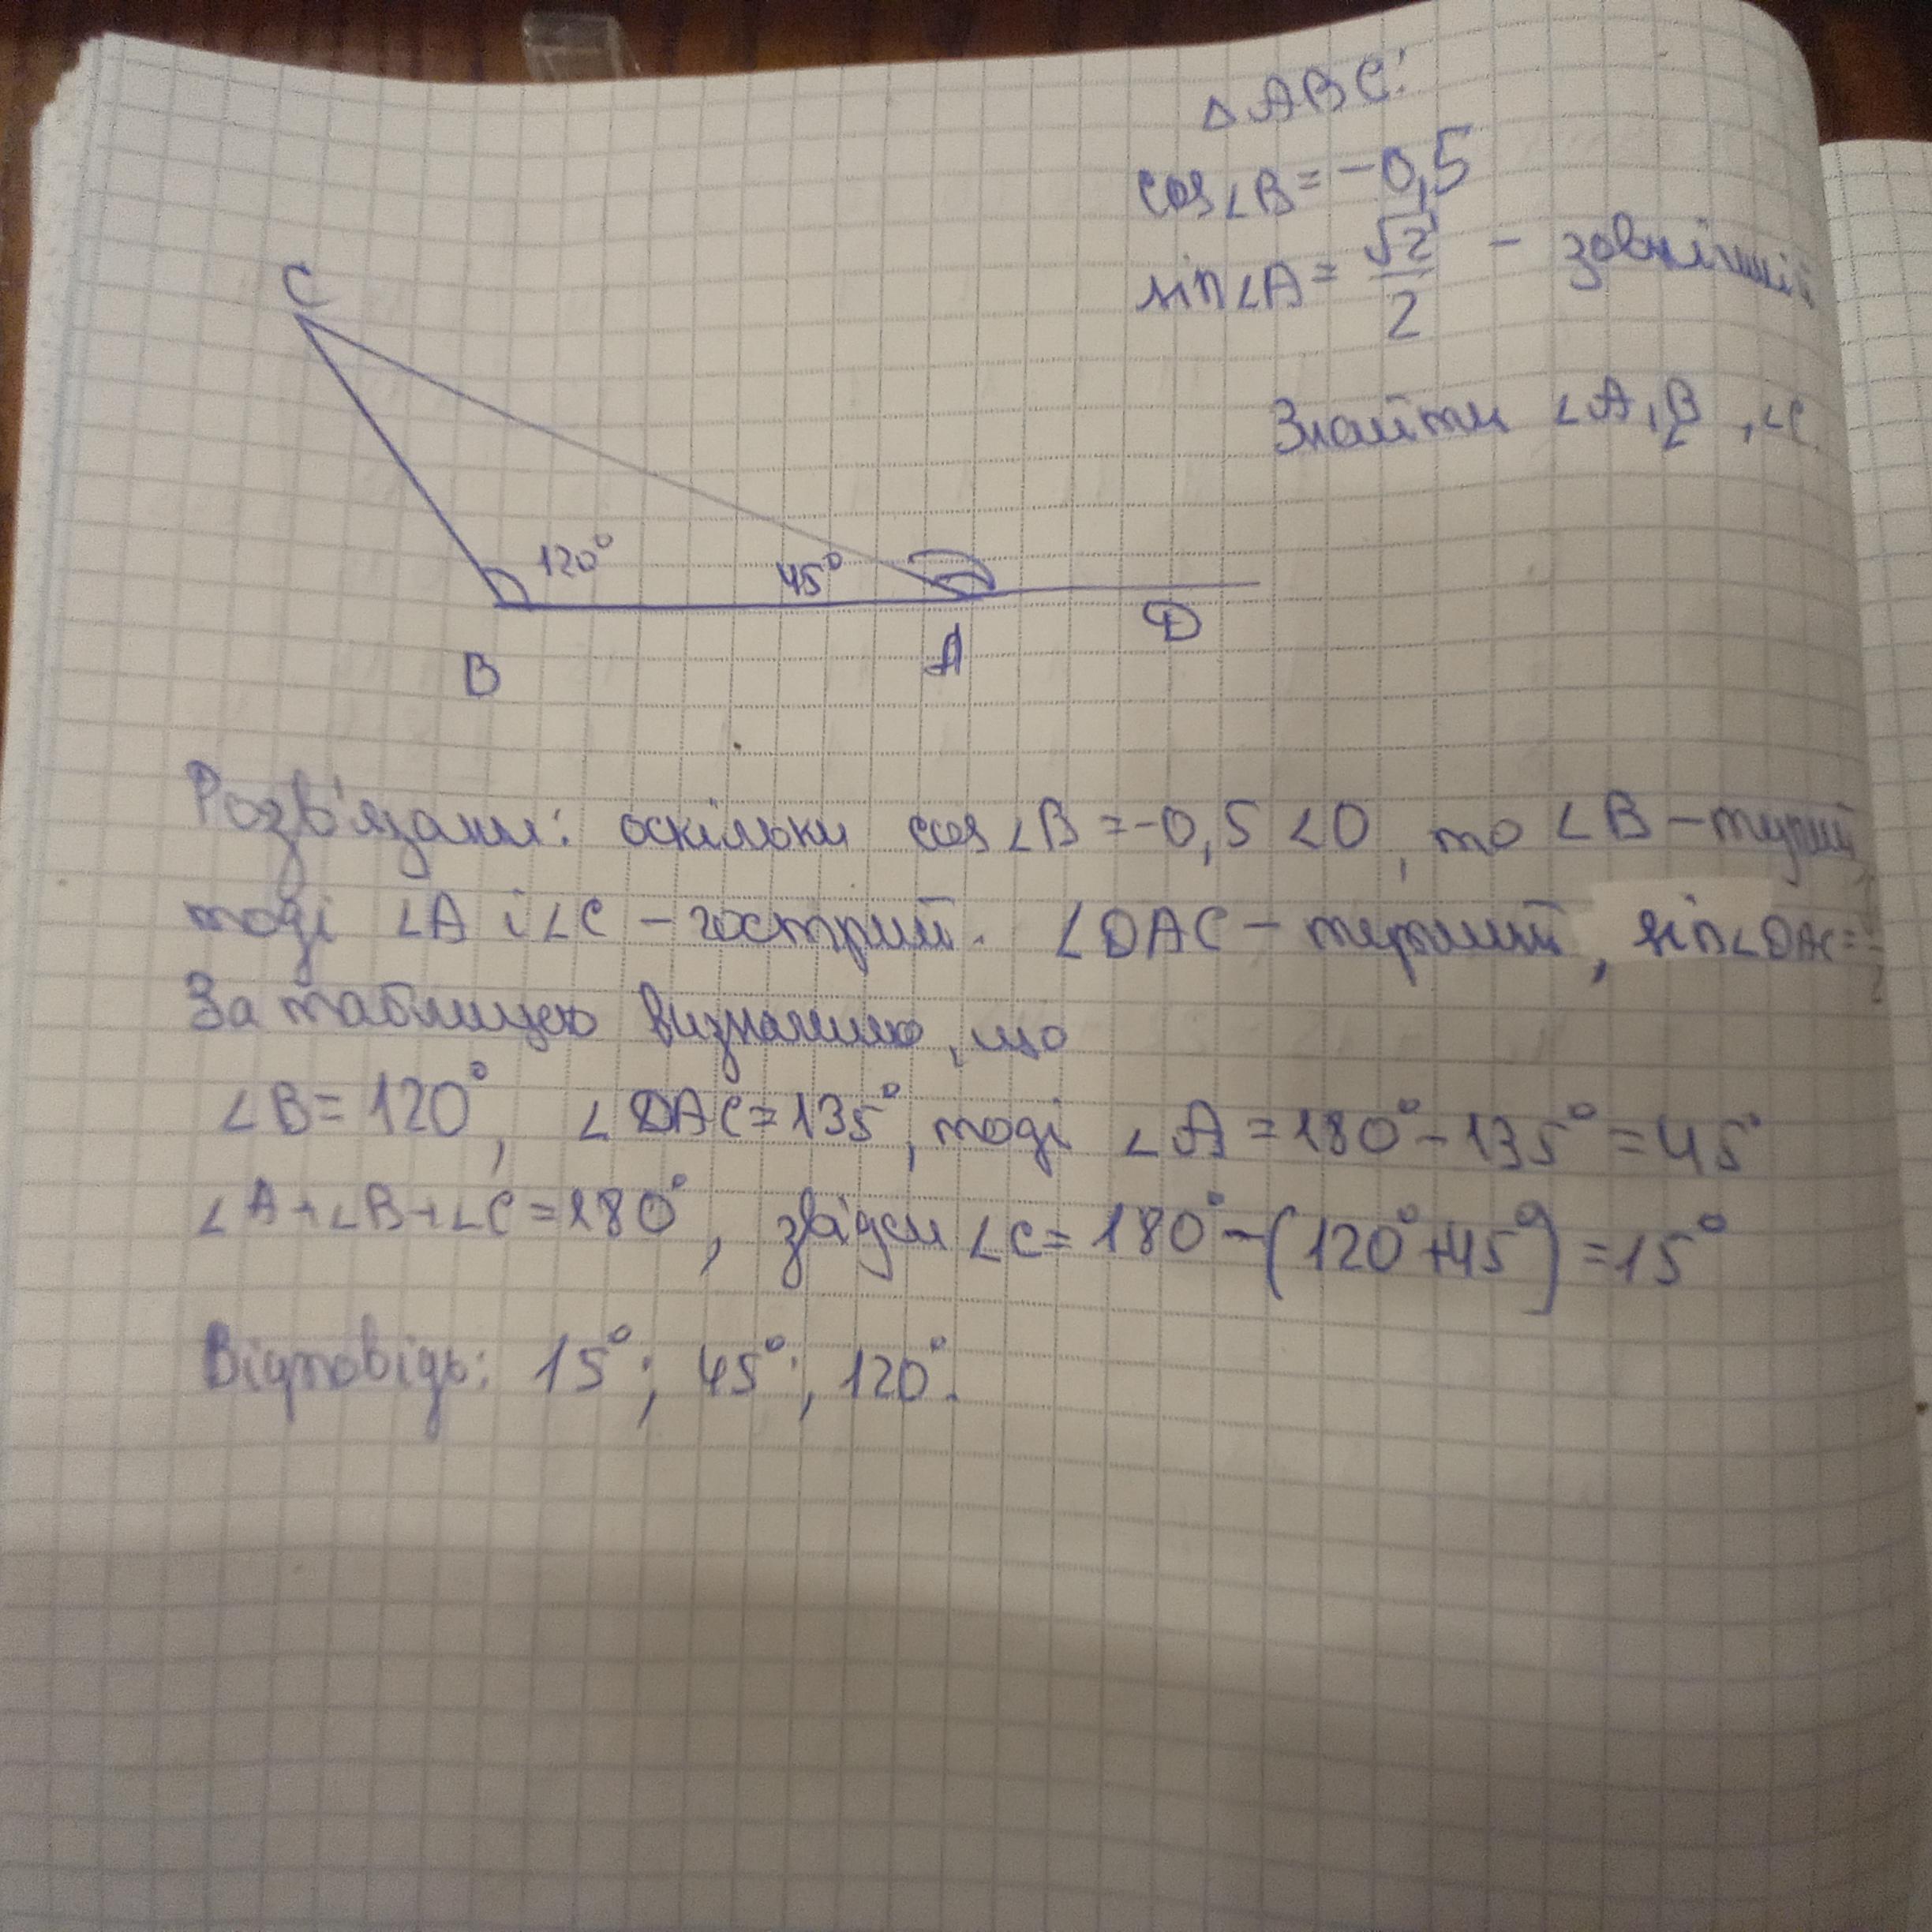 △ABC:
cos∠B = -0,5
sin∠A = √2/2 - зовнішній
Знайти ∠A, ∠B, ∠C.
C
120°
45°
B
A
D
Розв'язання: оскільки cos∠B = -0,5 < 0, то ∠B - тупий,
тоді ∠A і ∠C - гострий. ∠DAC - тупий, sin∠DAC =
За таблицею визначимо, що
∠B = 120°, ∠DAC = 135°, тоді ∠A = 180° - 135° = 45°
∠A + ∠B + ∠C = 180°, звідси ∠C = 180° - (120° + 45°) = 15°
Відповідь: 15°; 45°; 120°.